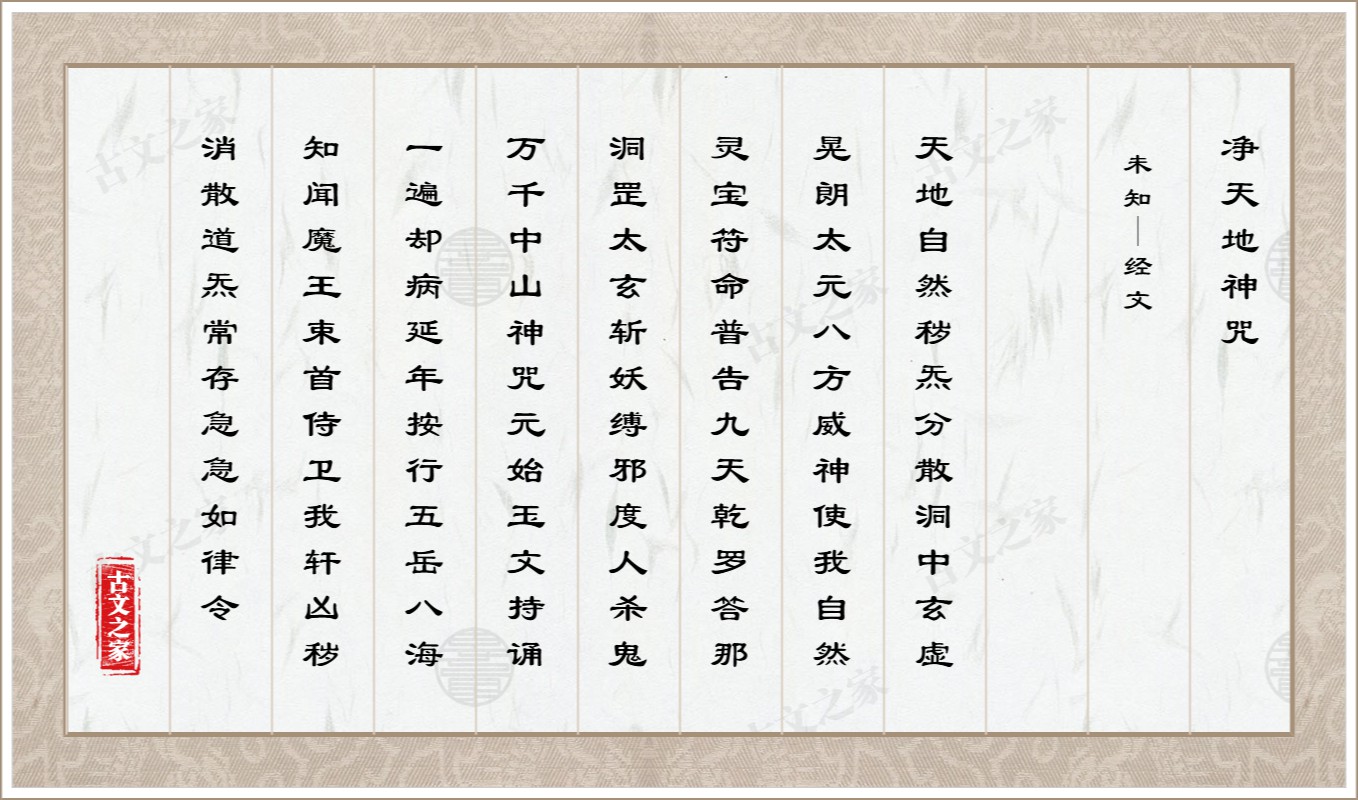 净天地神咒
未知—经文
天地自然秽炁分散洞中玄虚
晃朗太元八方威神使我自然
灵宝符命普告九天乾罗答那
洞罡太玄斩妖缚邪度人杀鬼
万千中山神咒元始玉文持诵
一遍却病延年按行五岳八海
知闻魔王束首侍卫我轩凶秽
消散道炁常存急急如律令
古文之家
古文之家
古文之家
古文之家
古文之家
古文之家
古文之家